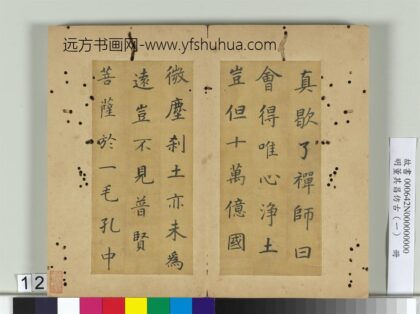 远方书画网-www.yfshuhua.com
真歇了禪師曰
會得唯心淨土
豈但十萬億國
微塵刹土亦未為
遠豈不見普賢
菩薩於一毛孔中
故書 000642N000000000
明董其昌仿古（一） 冊
12